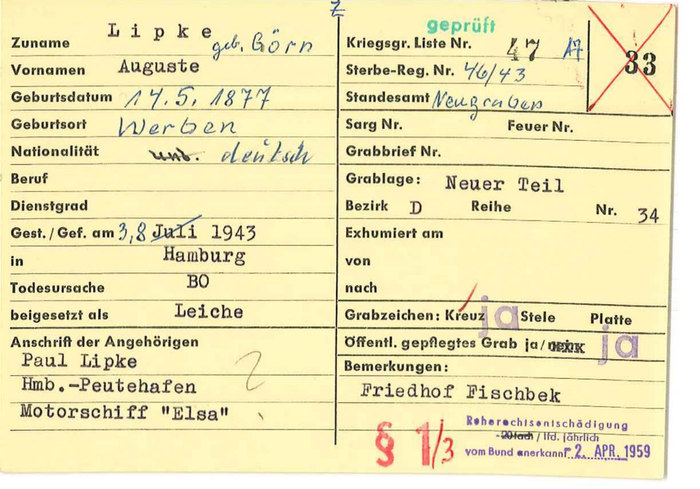 Z
Zuname Lipke geb. Görn
Vornamen Auguste
Geburtsdatum 14.5.1877
Geburtsort Werben
Nationalität unb. deutsch
Beruf
Dienstgrad
Gest. / Gef. am 3.8 Juli 1943
in Hamburg
Todesursache BO
beigesetzt als Leiche
Anschrift der Angehörigen
Paul Lipke
Hmb.-Peutehafen
Motorschiff "Elsa"
geprüft
Kriegsgr. Liste Nr. 47 A7
33
Sterbe-Reg. Nr. 46/43
Standesamt Neugraben
Sarg Nr. Feuer Nr.
Grabbrief Nr.
Grablage: Neuer Teil
Bezirk D Reihe Nr. 34
Exhumiert am
von
nach
Grabzeichen: Kreuz ja Stele Platte
Öffentl. gepflegtes Grab ja/nein ja
Bemerkungen:
Friedhof Fischbek
§ 1/3
Ruherechtsentschädigung
-20fach / lfd. jährlich
vom Bund anerkannt -2. APR. 1959